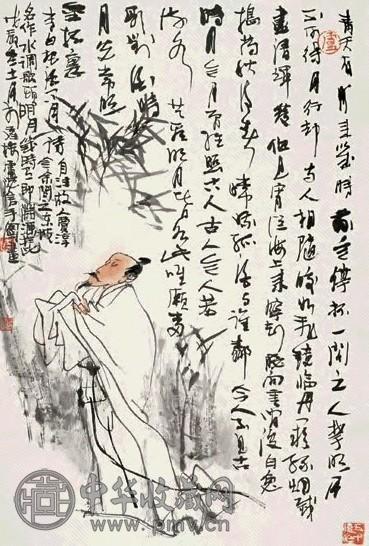 青天有月来几时 我今停杯一问之 人攀明月
不可得 月行却与人相随 皎如飞镜临丹阙 绿烟灭
尽清辉发 但见宵从海上来 宁知晓向云间没 白兔
捣药秋复春 嫦娥孤栖与谁邻 今人不见古
时月 今月曾经照古人 古人今人若
流水 共看明月皆如此 唯愿当
歌对酒时
月光常照
金樽里
李白把酒问月诗 自注故人贾淳
令余问之 东坡
名作水调歌头明月几时有即
戊辰
中华收藏网
www.pmcv.cn